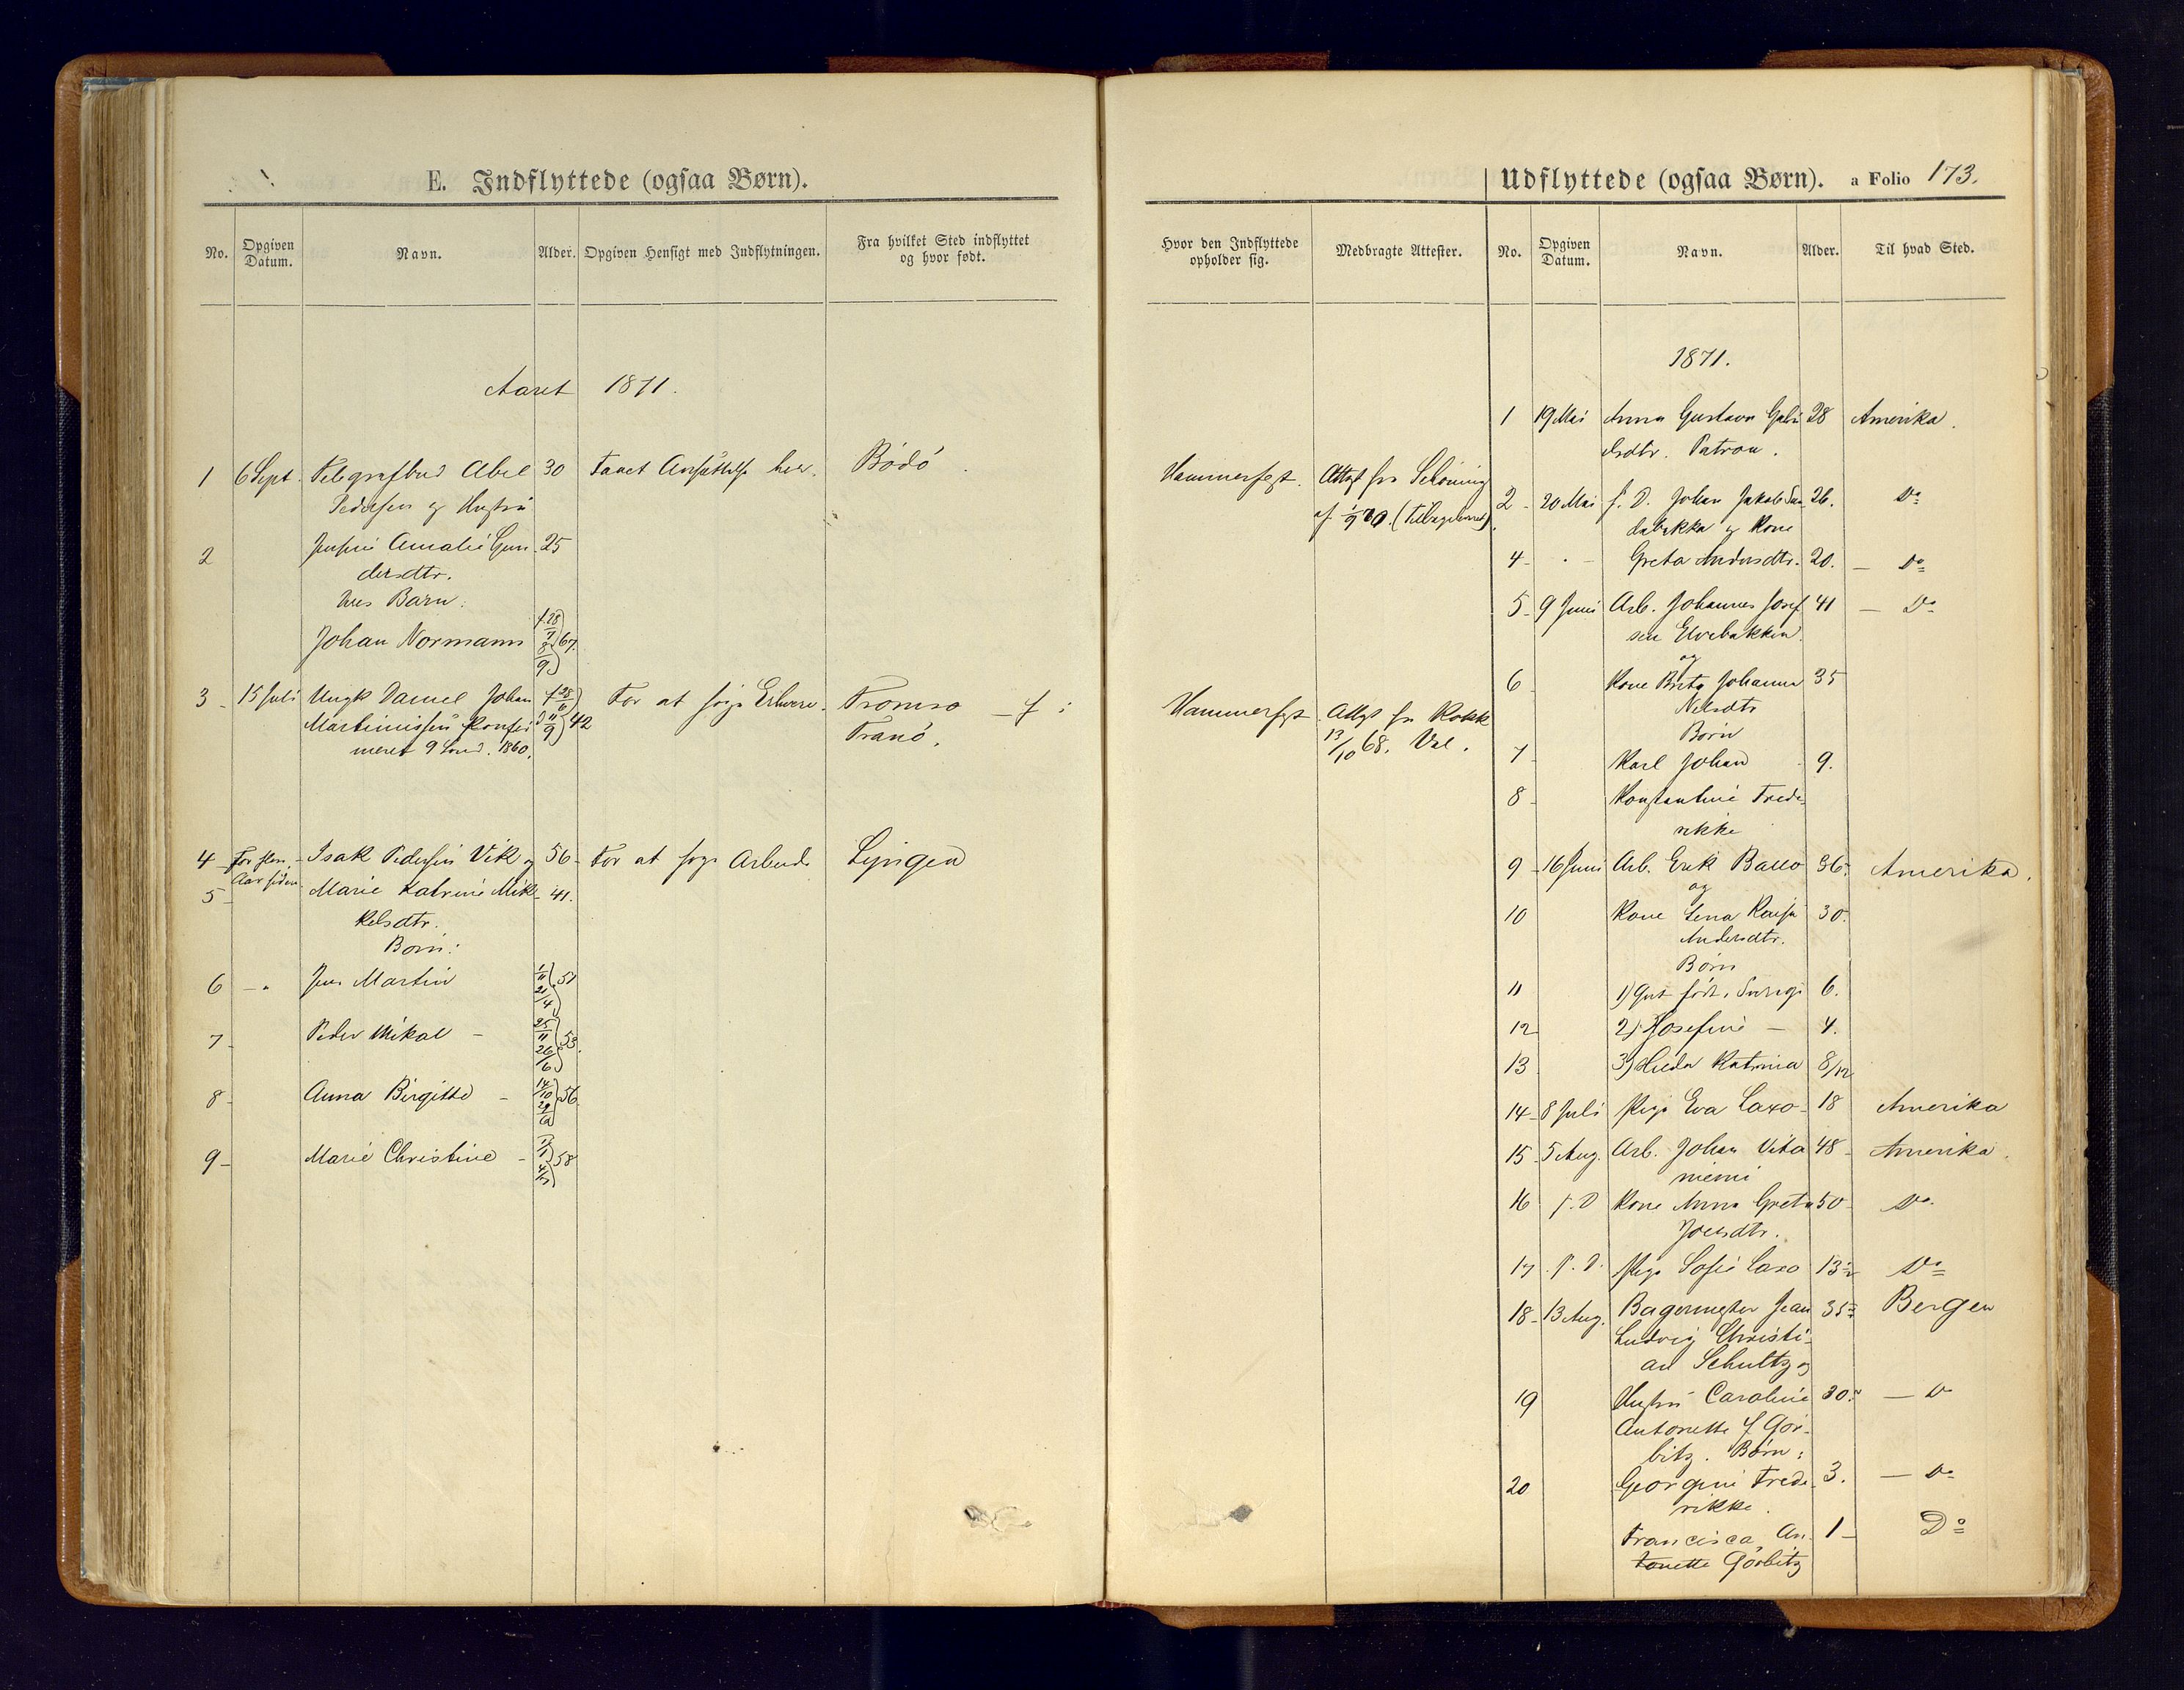 E. Indflyttede (ogsaa Børn).
No.
Opgiven Datum.
Navn.
Alder.
Opgiven Hensigt med Indflytningen.
Fra hvilket Sted indflyttet og hvor født.
Aaret 1871.
1 6 Sept. Telegrafbud Abel 30 faaet Ansættelse her. Bodö.
Pedersen og Hustru
2 Amalie Gun- 25
dersdtr.
Barn:
Johan Normann 67.
3 15 Juli Ungk Daniel Johan 42 For at søge Erhverv. Tromsø – f i
Martinussen Konfir-
meret 9 Sønd. 1860. Tranö.
4 For flere Isak Pedersen Vik og 56 For at søge Arbeide Lyngen
Aar siden
5 Marie Katrine Mik- 41.
kelsdtr.
Børn:
6 Jens Martin 51
7 Peder Mikal –
8 Anna Birgitte – 56
9 Marie Christine – 58
Udflyttede (ogsaa Børn). a Folio 173.
Hvor den Indflyttede opholder sig.
Medbragte Attester.
No.
Opgiven Datum.
Navn.
Alder.
Til hvad Sted.
Hammerfest. Attest fra Schöning
Hammerfest. Attest fra Kokk
13/10 68. Val.
1871.
1 19 Mai Anna Gustava 28 Amerika.
2 20 Mai f. D. Johan Jakob 26. Do
og Kone
4 Greta Andersdtr. 20. – Do
5 9 Juni Arb. Johannes Josef 41 – Do
sen Elvebakken
og
6 Kone Brita Johanna 35
Nelsdtr
Børn
7 Karl Johan 9.
8 Konstantine Frede-
rikke
9 16 Juni Arb. Erik Ballo 36. Amerika.
og
10 Kone Lena Kaisa 30.
Andersdtr.
Børn
11 1) Gut født i Sverige 6.
12 2) Josefine – 4.
13 3) Hilda Katrina 8/12
14 8 Juli Pige Eva Laxo 18 Amerika
15 5 Aug. Arb. Johan Vita 48 Amerika.
niemi
16 f. D Kone Anna Greta 50 Do
Joensdtr.
17 f. D. Pige Sofie Laxo 13 Do
18 13 Aug. Bagermester Jean 35 Bergen
Ludvig Christi-
an Schultz og
19 Hustru Caroline 30 – Do
Antonette f Gör-
bitz. Børn:
20 Georgine Frede- 3. – Do
rikke.
Francisca An- 1 – Do
tonette Görbitz